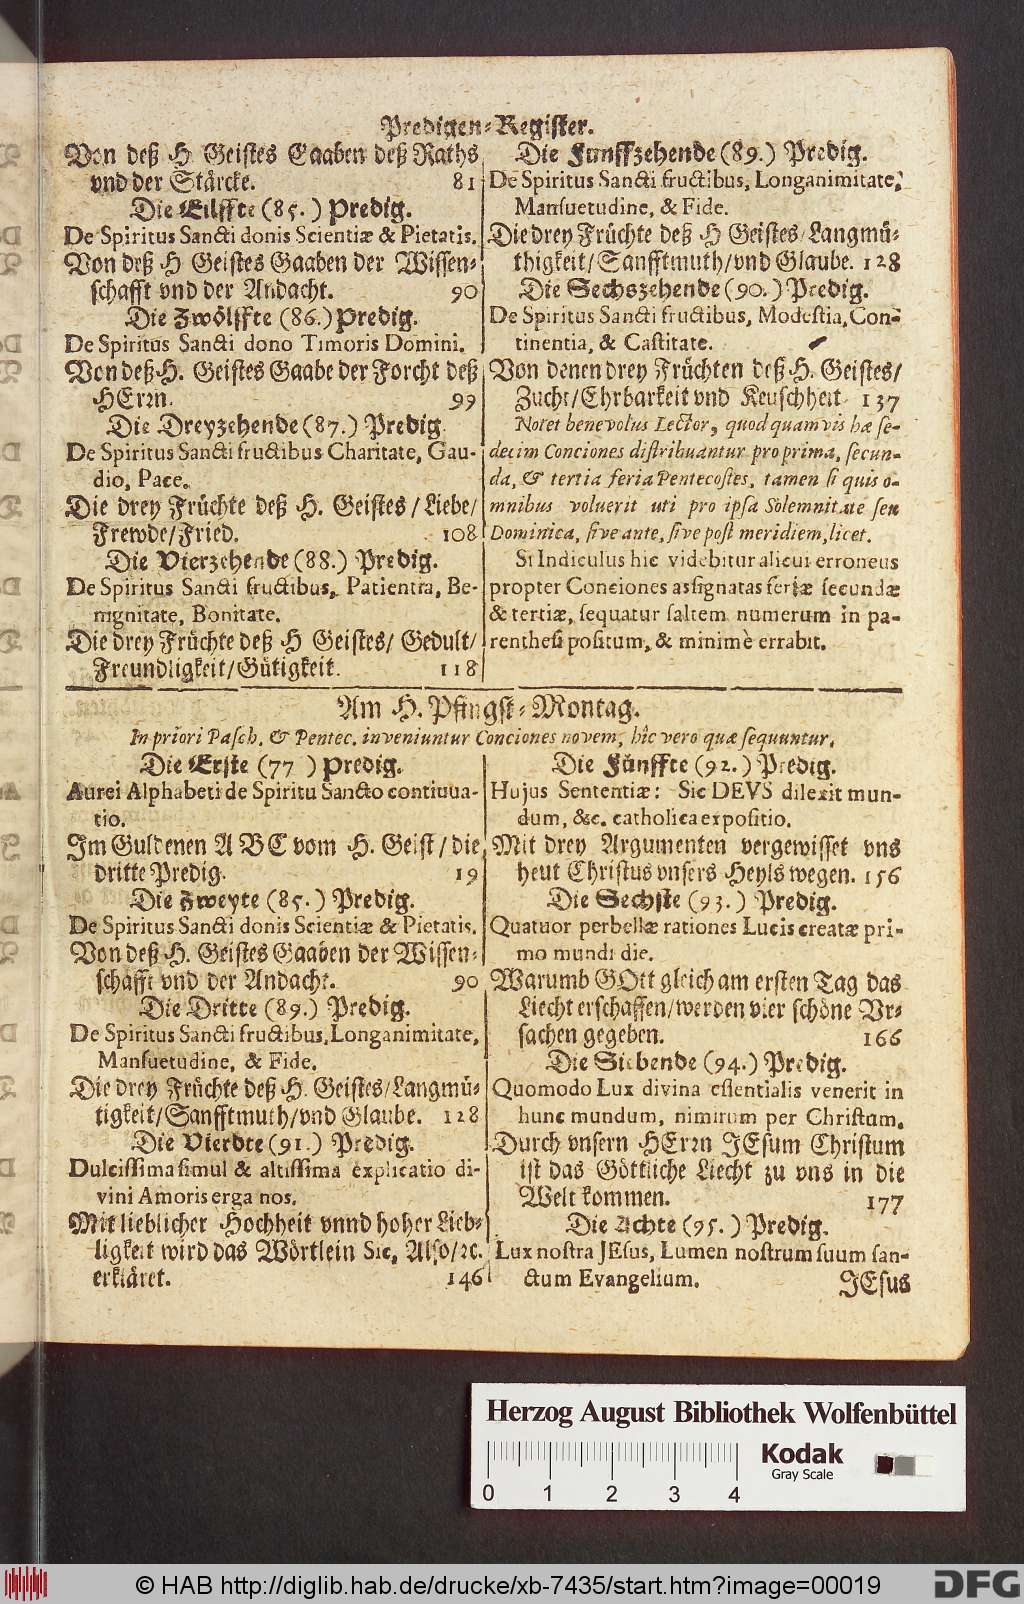 Predigen-Register.
Von deß H. Geistes Gaaben deß Raths
vnd der Stärcke. 81
Die Eilffte (85.) Predig.
De Spiritus Sancti donis Scientiæ & Pietatis.
Von deß H Geistes Gaaben der Wissen-
schafft vnd der Andacht. 90
Die Zwölffte (86.) Predig.
De Spiritus Sancti dono Timoris Domini.
Von deß H. Geistes Gaabe der Forcht deß
HErrn. 99
Die Dreyzehende (87.) Predig.
De Spiritus Sancti fructibus Charitate, Gau-
dio, Pace.
Die drey Früchte deß H. Geistes / Liebe/
Frewde/Fried. 108
Die Vierzehende (88.) Predig.
De Spiritus Sancti fructibus, Patientia, Be-
nignitate, Bonitate.
Die drey Früchte deß H Geistes/ Gedult/
Freundligkeit/Gütigkeit. 118
Die Fünffzehende (89.) Predig.
De Spiritus Sancti fructibus, Longanimitate,
Mansuetudine, & Fide.
Die drey Früchte deß H Geistes/Langmü-
thigkeit/Sanfftmuth/vnd Glaube. 128
Die Sechszehende (90.) Predig.
De Spiritus Sancti fructibus, Modestia, Con-
tinentia, & Castitate.
Von denen drey Früchten deß H. Geistes/
Zucht/Ehrbarkeit vnd Keuschheit 137
Notet benevolus Lector, quod quamvis hæ se-
decim Conciones distribuantur pro prima, secun-
da, & tertia feria Pentecostes, tamen si quis o-
mnibus voluerit uti pro ipsa Solemnitate seu
Dominica, sive ante, sive post meridiem, licet.
Si Indiculus hic videbitur alicui erroneus
propter Conciones assignatas feriæ secundæ
& tertiæ, sequatur saltem numerum in pa-
renthesi positum, & minimè errabit.
Am H. Pfingst-Montag.
In priori Pasch. & Pentec. inveniuntur Conciones novem, hîc vero quæ sequuntur.
Die Erste (77) Predig.
Aurei Alphabeti de Spiritu Sancto continua-
tio.
Im Guldenen A B C vom H. Geist / die
dritte Predig. 19
Die Zweyte (85.) Predig.
De Spiritus Sancti donis Scientiæ & Pietatis.
Von deß H. Geistes Gaaben der Wissen-
schafft vnd der Andacht. 90
Die Dritte (89.) Predig.
De Spiritus Sancti fructibus, Longanimitate,
Mansuetudine, & Fide.
Die drey Früchte deß H. Geistes/Langmü-
tigkeit/Sanfftmuth/vnd Glaube. 128
Die Vierdte (91.) Predig.
Dulcissima simul & altissima explicatio di-
vini Amoris erga nos.
Mit lieblicher Hochheit vnnd hoher Lieb-
ligkeit wird das Wörtlein Sic, Also/ꝛc.
erkläret. 146
Die Fünffte (92.) Predig.
Hujus Sententiæ: Sic DEVS dilexit mun-
dum, &c. catholica expositio.
Mit drey Argumenten vergewisset vns
heut Christus vnsers Heyls wegen. 156
Die Sechste (93.) Predig.
Quatuor perbellæ rationes Lucis creatæ pri-
mo mundi die.
Warumb GOtt gleich am ersten Tag das
Liecht erschaffen/werden vier schöne Vr-
sachen gegeben. 166
Die Siebende (94.) Predig.
Quomodo Lux divina essentialis venerit in
hunc mundum, nimirum per Christum.
Durch vnsern HErrn JEsum Christum
ist das Göttliche Liecht zu vns in die
Welt kommen. 177
Die Achte (95.) Predig.
Lux nostra JEsus, Lumen nostrum suum san-
ctum Evangelium.
JEsus
Herzog August Bibliothek Wolfenbüttel
Kodak
Gray Scale
0 1 2 3 4
© HAB http://diglib.hab.de/drucke/xb-7435/start.htm?image=00019
DFG